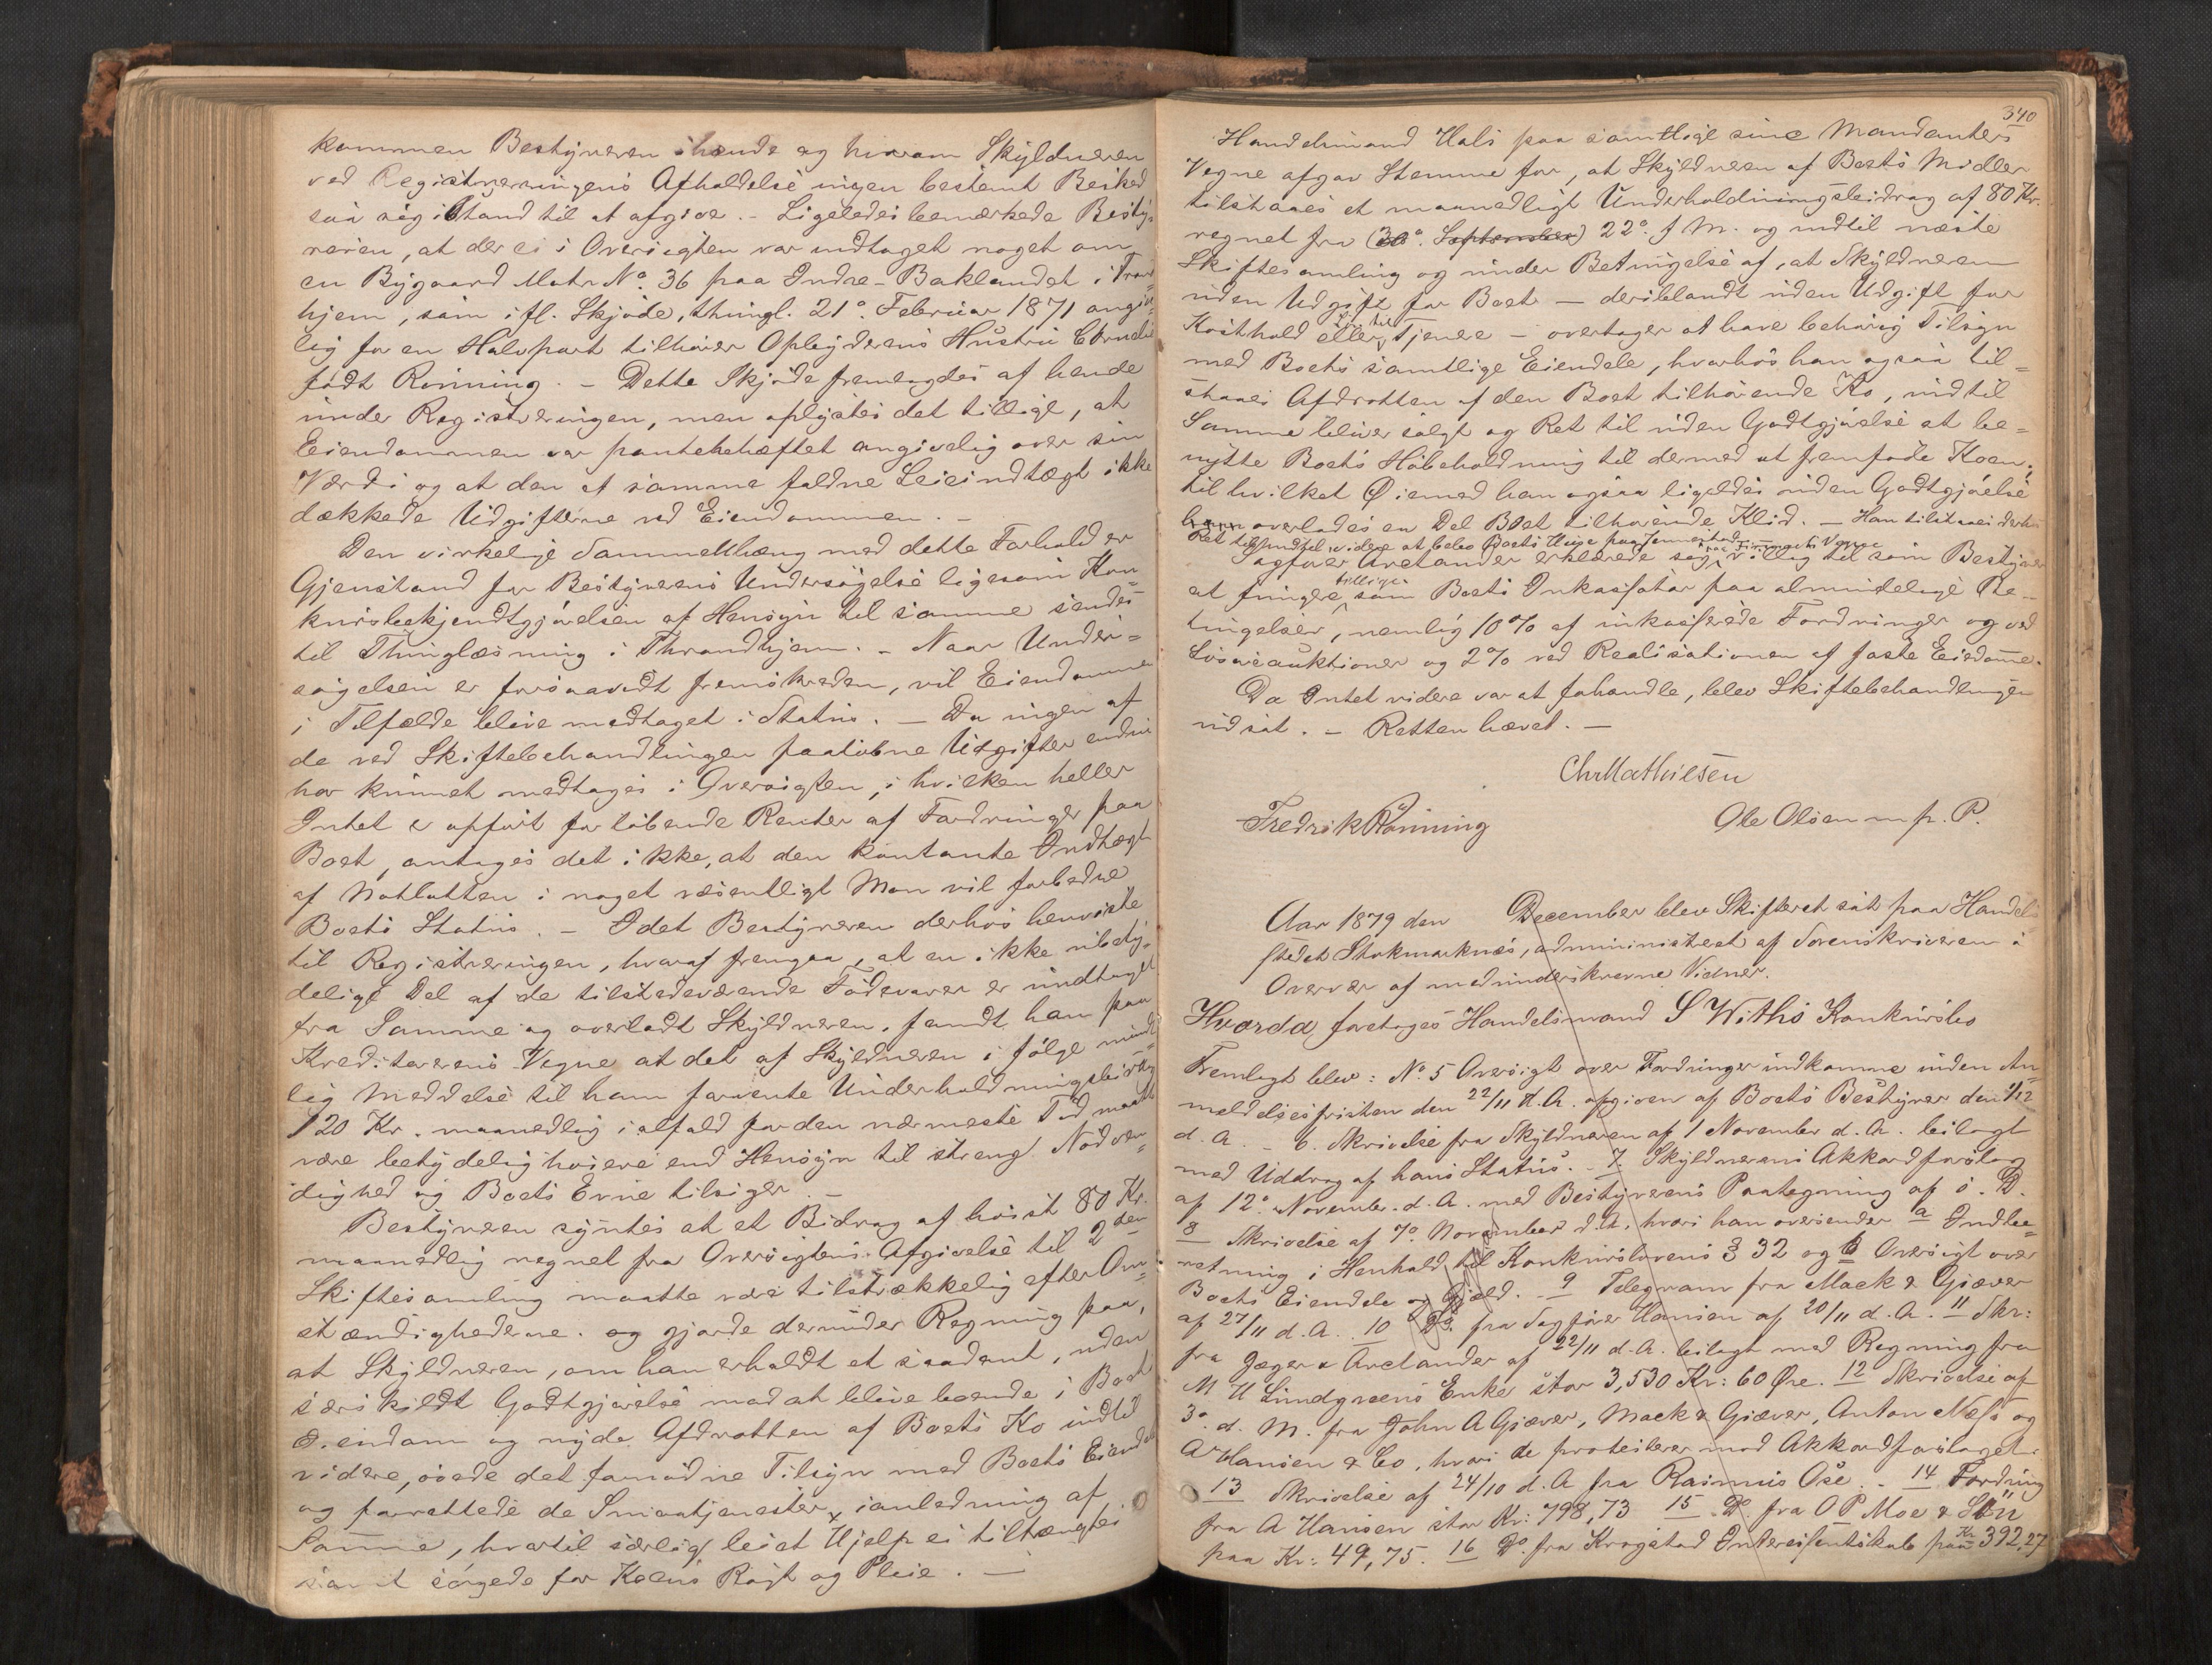 kommen Bestyreren ihænde og hvorom Skyldneren
ved Registreringens Afholdelse ingen bestemt Besked
saa sig istand til at afgive. - Ligeledes bemærkede Besty-
reren, at der ei i Oversigten var indtaget noget om
en Bygaard Matr No. 36 paa Indre-Baklandet i Trond-
hjem, som ifl. Skjøde, thingl. 21de Februar 1871 angive-
lig for en Halvpart tilhører Opbyderens Hustru Cornelia
født Rønning. - Dette Skjøde fremlagdes af hende
under Registreringen, men oplystes det tillige, at
Eiendommen var pantebehæftet angivelig over sin
Værdi og at den af samme faldne Leieindtægt ikke
dækkede Udgifterne ved Eiendommen. -
Den virkelige Sammenhæng med dette Forhold er
Gjenstand for Bestyrerens Undersøgelse ligesom Kon-
kursbekjendtgjørelsen af Hensyn til samme sendes
til Thinglæsning i Throndhjem. - Naar Under-
søgelsen er forsaavidt fremskreden, vil Eiendommen
i Tilfælde blive medtaget i Status. - Da ingen af
de ved Skiftebehandlingen paaløbne Udgifter endnu
har kunnet medtages i Oversigten, i hvilken heller
Intet er opført for løbende Renter af Fordringer paa
Boet, antages det ikke, at den kontante Indtægt
af Notlotten i noget væsentligt Mon vil forbedre
Boets Status. - Idet Bestyreren derhos henviste
til Registreringen, hvoraf fremgaar, at en ikke ubety-
delig Del af de tilstedeværende Fødevarer er undtaget
fra Samme og overladt Skyldneren, fandt han paa
Kreditorernes Vegne at det af Skyldneren i følge mundt-
lig Meddelse til ham forventede Underholdningsbidrag
120 Kr. maanedlig ialfald for den nærmeste Tid maatte
være betydelig høiere end Hensyn til streng Nødven-
dighed og Boets Evne tilsiger. -
Bestyreren syntes at et Bidrag af høist 80 Kr.
maanedlig regnet fra Oversigtens Afgivelse til 2den
Skiftesamling maatte være tilstrækkelig efter Om-
stændighederne. og gjorde derunder Regning paa,
at Skyldneren, om han erholdt et saadant, uden
særskildt Godtgjørelse mod at blive boende i Boets
Eiendom og nyde Afdrotten af Boets Ko indtil
videre, øvede det fornødne Tilsyn med Boets Eiendele
og forrettede de Smaatjenester, ianledning af
Samme, hvortil særlig leiet Hjelp ei tiltrængtes
samt sørgede for Koens Røgt og Pleie. -
340
Handelsmand Hals paa samtlige sine Mandanters
Vegne afgav Stemme for, at Skyldneren af Boets Midler
tilstaaes et maanedligt Underholdningsbidrag af 80 Kr.
regnet fra (30te September) 22de f. M. og indtil næste
Skiftesamling og under Betingelse af, at Skyldneren
uden Udgift for Boet - deriblandt uden Udgift for
Kosthold eller Løn til Tjener - overtager at have behørig Tilsyn
med Boets samtlige Eiendele, hvorhos han ogsaa til-
staaes Afdrotten af den Boet tilhørende Ko, indtil
Samme bliver solgt og Ret til uden Godtgjørelse at be-
nytte Boets Høbeholdning til dermed at fremføde Koen;
til hvilket Øiemed han ogsaa ligeledes uden Godtgjørelse
overlades en Del Boet tilhørende Klid. - Han tilstaaes derhos
Ret til indtil videre at bebo Boets Huse paa
Sagfører Arctander erklærede sig villig til som Bestyrer
at fungere tillige som Boets Inkassator paa almindelige Be-
tingelser, nemlig 10% af inkasserede Fordringer og ved
Løsøreauktioner og 2% ved Realisationen af faste Eiendomme.
Da Intet videre var at forhandle, blev Skiftebehandlingen
udsat. - Retten hævet. -
Chr Mathiesen
Fredrik Rønning
Ole Olsen m. p. P.
Aar 1879 den December blev Skifteret sat paa Handels-
stedet Stokmarknæs, administreret af Sorenskriveren i
Overvær af medunderskrevne Vidner.
Hvorda foretoges Handelsmand S Withs Konkursbo
Fremlagt blev: No. 5 Oversigt over Fordringer indkomne inden An-
meldelsesfristen den 22/11 d. A. afgiven af Boets Bestyrer den 1/12
d. A. - 6. Skrivelse fra Skyldneren af 1 November d. A. bilagt
med Uddrag af hans Status. - 7. Skyldnerens Akkordforslag
af 12te November d. A. med Bestyrerens Paategning af s. D.
8 Skrivelse af 7de November d. A. hvori han oversender a Indbe-
retning i Henhold til Konkurslovens § 32 og b Oversigt over
Boets Eiendele og Gjæld. - 9 Telegram fra Mack & Gjæver
af 27/11 d. A. 10 Do. fra Sagfører Hansen af 20/11 d. A. 11 Skr:
fra Jæger & Arctander af 22/11 d. A. bilagt med Regning fra
M U Lindgreens Enke stor 3,530 Kr: 60 Øre. 12 Skrivelse af
3de d. M. fra John A Gjæver, Mack & Gjæver, Anton Næss og
A Hansen & Co, hvori de protesterer mod Akkordforslaget.
13 Skrivelse af 24/10 d. A fra Rasmus Ose. - 14 Fordring
fra A Hansen stor Kr: 798,73 15 Do. fra O P Moe & Søn
paa Kr: 49,75. 16 Do. fra Krogstad Interessentskab paa Kr 392,27